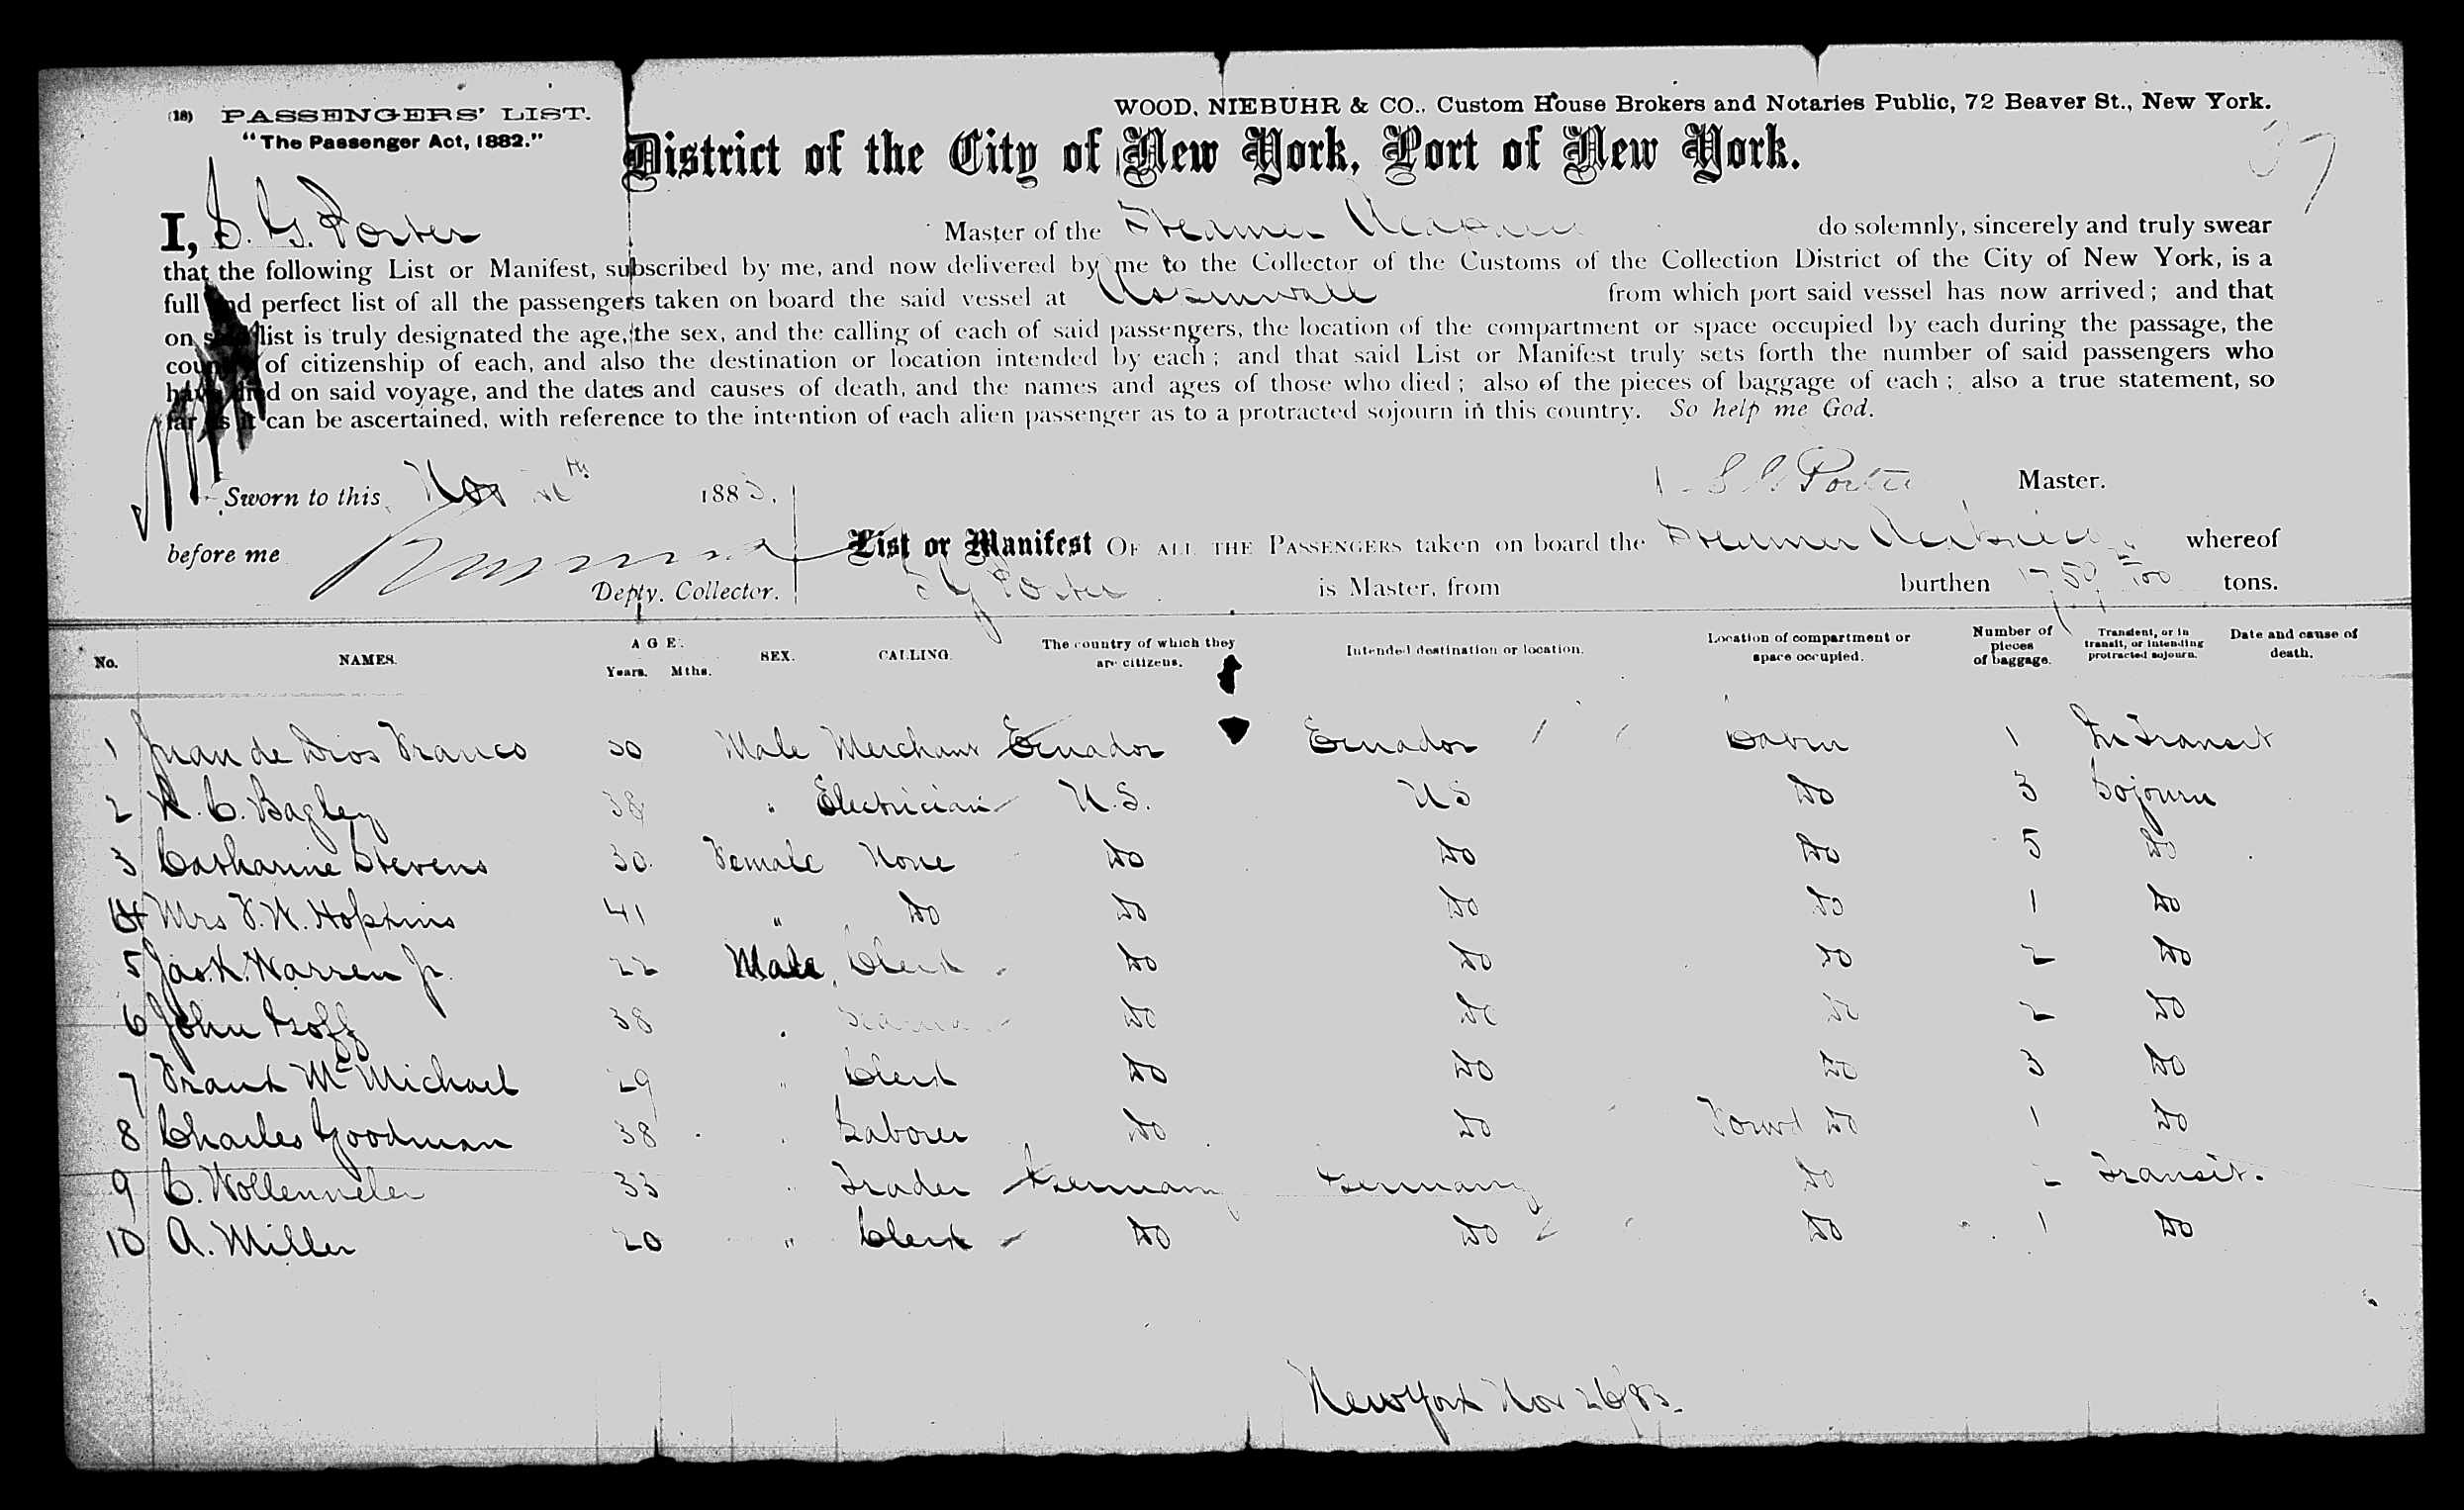 (18) PASSENGERS' LIST.
"The Passenger Act, 1882."
WOOD, NIEBUHR & CO., Custom House Brokers and Notaries Public, 72 Beaver St., New York.
37
District of the City of New York, Port of New York.
I, S. G. Porter Master of the Steamer do solemnly, sincerely and truly swear
that the following List or Manifest, subscribed by me, and now delivered by me to the Collector of the Customs of the Collection District of the City of New York, is a
full and perfect list of all the passengers taken on board the said vessel at Aspinwall from which port said vessel has now arrived; and that
on said list is truly designated the age, the sex, and the calling of each of said passengers, the location of the compartment or space occupied by each during the passage, the
country of citizenship of each, and also the destination or location intended by each; and that said List or Manifest truly sets forth the number of said passengers who
have died on said voyage, and the dates and causes of death, and the names and ages of those who died; also of the pieces of baggage of each; also a true statement, so
far as it can be ascertained, with reference to the intention of each alien passenger as to a protracted sojourn in this country. So help me God.
Sworn to this Nov 26th 1883. S. G. Porter Master.
before me
Depty. Collector.
List or Manifest OF ALL THE PASSENGERS taken on board the Steamer whereof
S G Porter is Master, from burthen tons.
No. NAMES. AGE. Years. Mths. SEX. CALLING. The country of which they are citizens. Intended destination or location. Location of compartment or space occupied. Number of pieces of baggage. Transient, or in transit, or intending protracted sojourn. Date and cause of death.
1 Juan de Dios Franco 50 Male Merchant Ecuador Ecuador Cabin 1 In Transit
2 R. C. Bagley 38 " Electrician U.S. U S Do 3 Sojourn
3 Catharine Stevens 30 Female None Do Do Do 5 Do
4 Mrs F. W. Hopkins 41 " Do Do Do Do 1 Do
5 Jas. K. Warren Jr. 22 Male Clerk Do Do Do 2 Do
6 John Goff 38 " Do Do Do 2 Do
7 Frank McMichael 29 " Clerk Do Do Do 3 Do
8 Charles Goodman 38 " Laborer Do Do Forwd Do 1 Do
9 C. Wollenweber 33 " Trader Germany Germany Do 2 Transit.
10 A. Miller 20 " Clerk Do Do Do 1 Do
New York Nov 26/83.